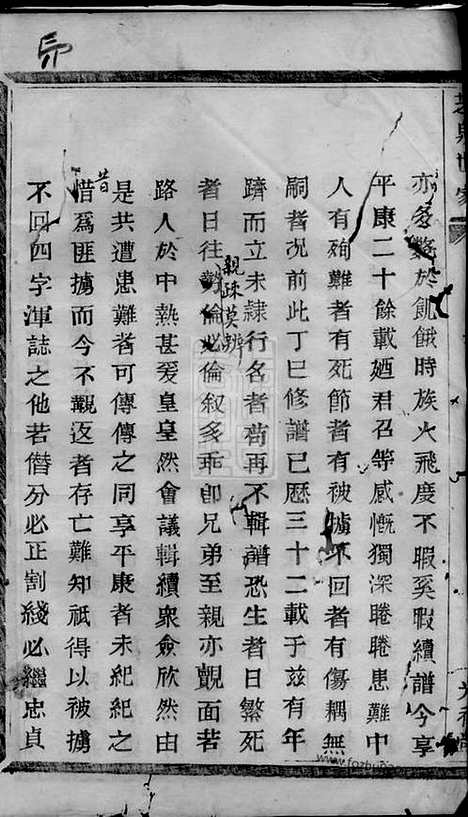 亦多斃於飢餓時族火飛度不暇奚暇續譜今享
平康二十餘載廼君召等感慨獨深睠睠患難中
人有殉難者有死節者有被擄不回者有傷耦無
嗣者况前此丁巳修譜已歷三十二載于兹有年
躋而立未隸行名者苟再不輯譜恐生者日繁死
者日往彝倫必倫叙多乖卽兄弟至親亦覿面若
親疎莫辨
路人於中熱甚爰皇皇然會議輯續衆僉欣然由
是共遭患難者可傳傳之同享平康者未紀紀之
昔
惜爲匪擄而今不覩返者存亡難知祇得以被擄
不回四字渾誌之他若僭分必正割綫必繼忠貞